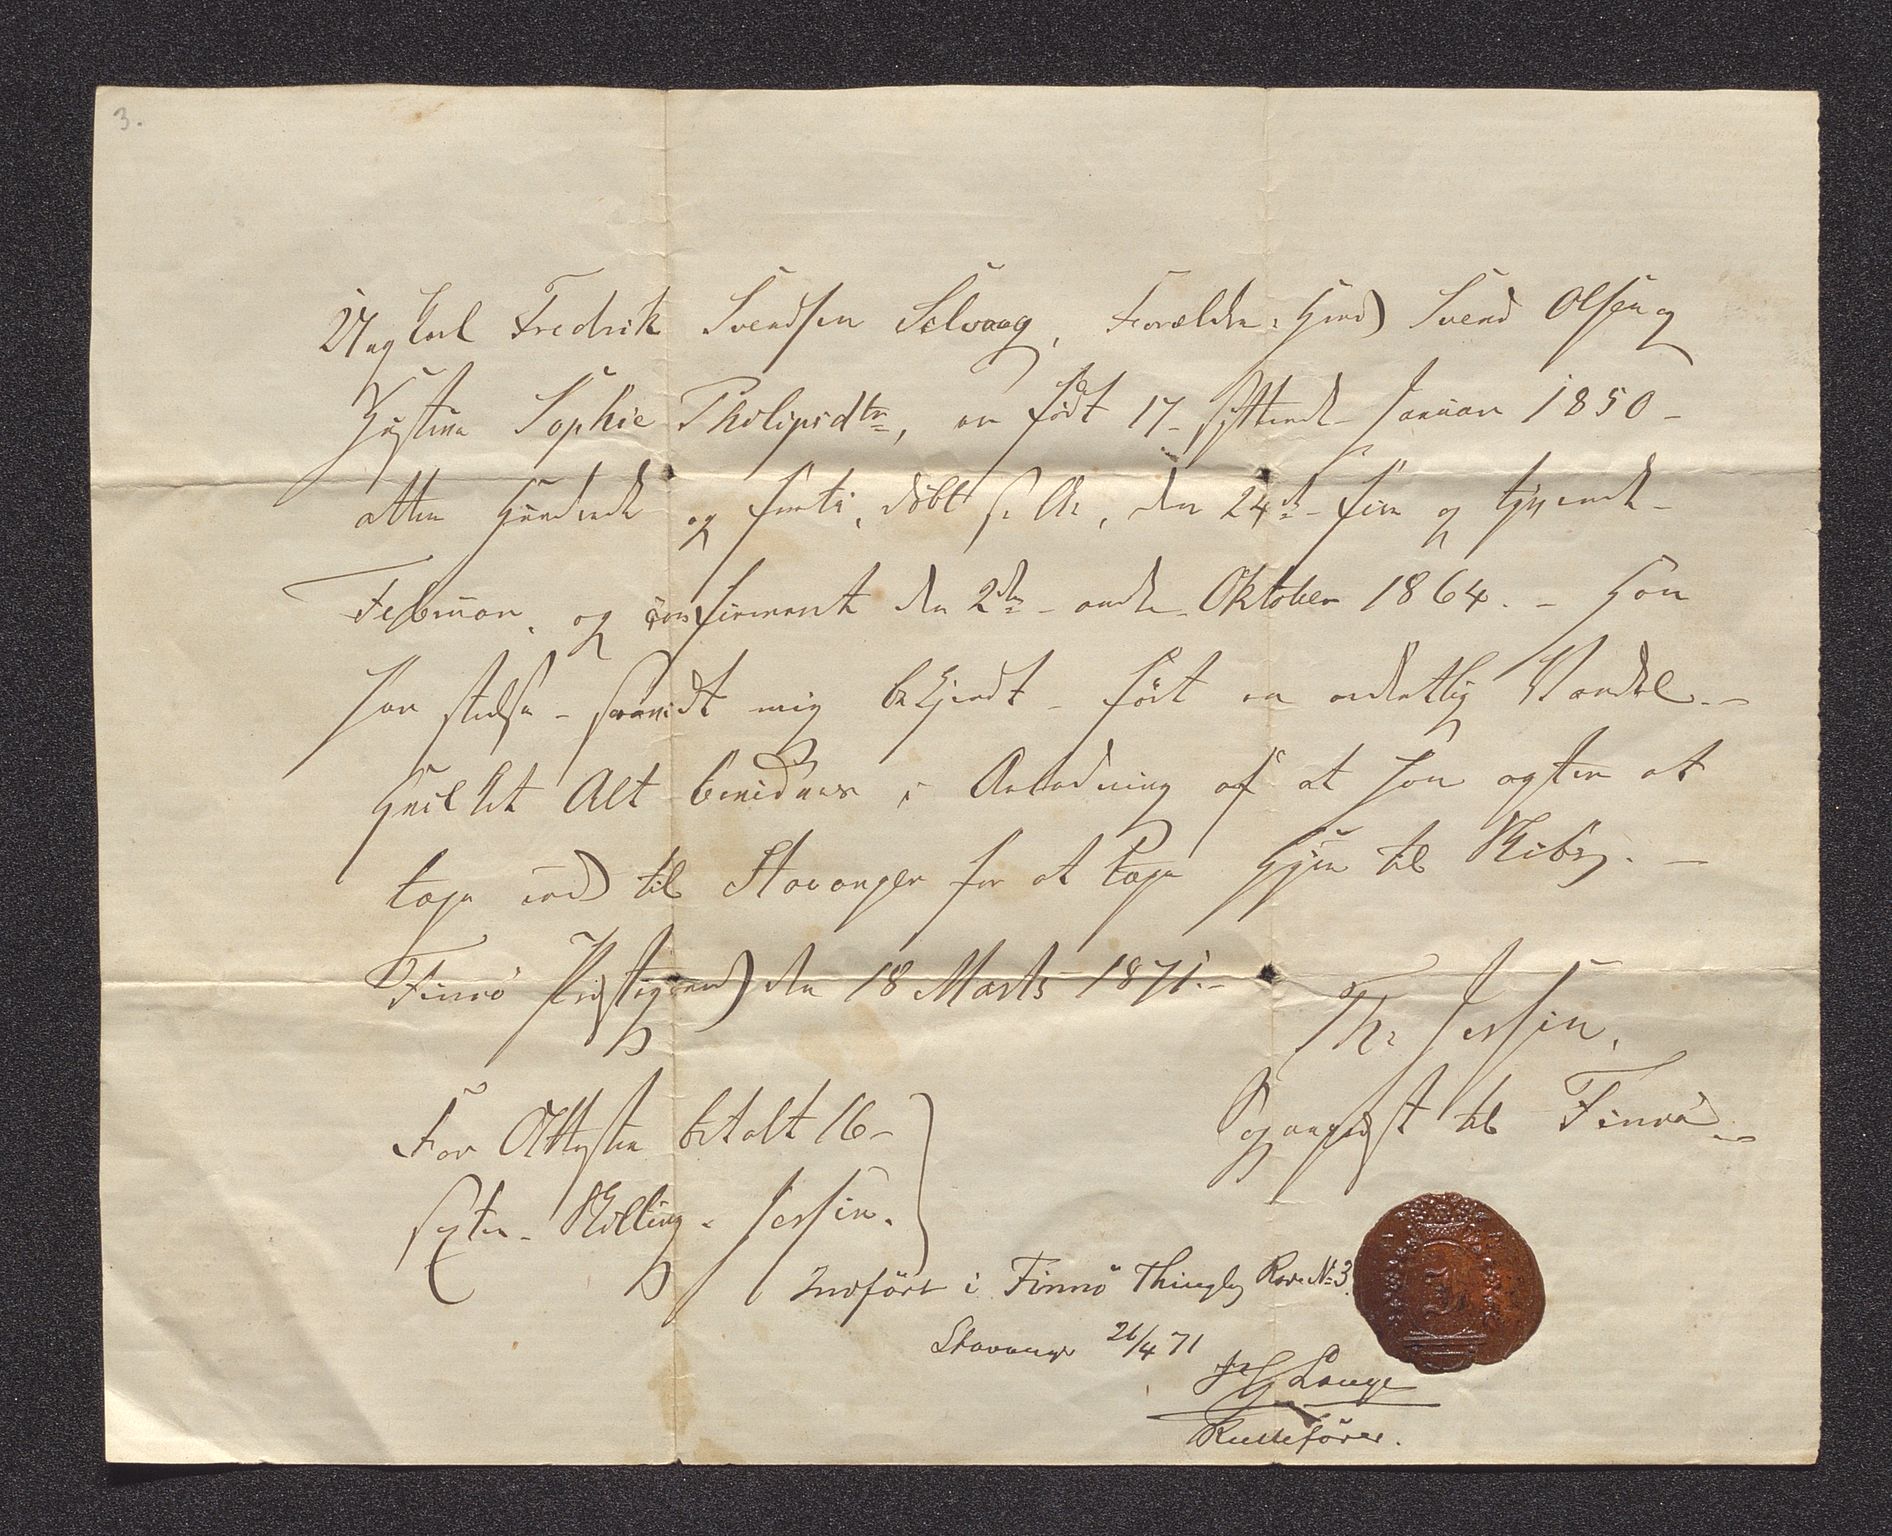 3.
Ungkarl Fredrik Svendsen Selvaag, Forældre: Huusmd Svend Olsen og
Justine Sophie Philipsdtr, er født 17 - syttende - Januar 1850 -
atten Hundrede og femti, døbt s. A., den 24de - fire og tyvende -
Februar, og confirmeret den 2den - anden - Oktober 1864. - Han
har stedse - saavidt mig bekjendt - ført en ordentlig Vandel. -
Hvilket Alt bevidnes i Anledning af at han agter at
tage ind til Stavanger for at tage Hyre til Skibs. -
Finnö Præstegaard den 18 Marts 1871. -
Th. Jessen,
Sognepræst til Finnö. -
For Attesten betalt 16 -
sexten - Skilling. Jessen.
Indført i Finnö Thinglag Rode No 3.
Stavanger 26/4 71
Lange
Rulleförer.